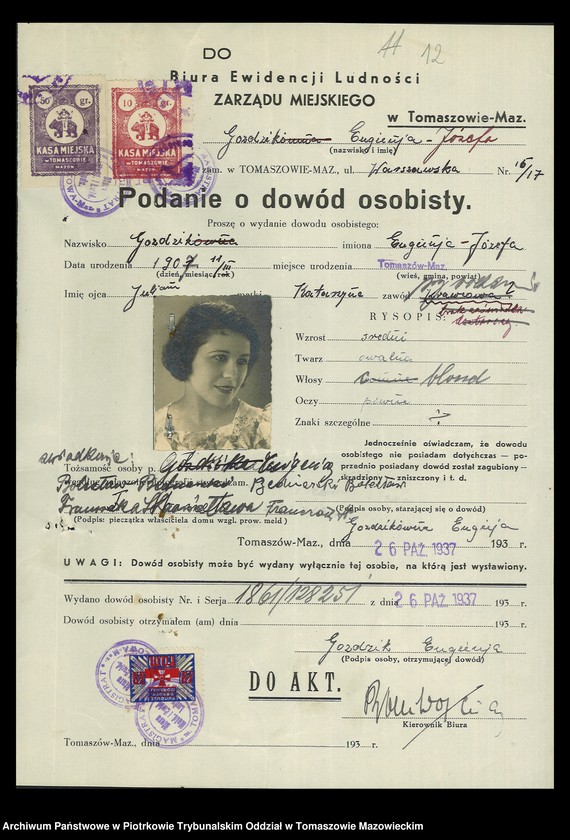 11 12
DO
Biura Ewidencji Ludności
ZARZĄDU MIEJSKIEGO
w Tomaszowie-Maz.
50 gr.
KASA MIEJSKA
w TOMASZOWIE
MAZOW.
10 gr.
KASA MIEJSKA
w TOMASZOWIE
MAZOW.
Gozdzikówna Eugenja-Józefa
(nazwisko i imię)
zam. w TOMASZOWIE-MAZ., ul. Warszawska Nr. 16/17
Podanie o dowód osobisty.
Proszę o wydanie dowodu osobistego:
Nazwisko Gozdzikówna imiona Eugenja-Józefa
Data urodzenia 1907 11/III miejsce urodzenia Tomaszów-Maz.
(dzień, miesiąc, rok) (wieś, gmina, powiat)
Imię ojca Juljan matki Katarzyna zawód
RYSOPIS:
Wzrost średni
Twarz owalna
Włosy blond
Oczy piwne
Znaki szczególne ?
Jednocześnie oświadczam, że dowodu
osobistego nie posiadam dotychczas — po-
przednio posiadany dowód został zagubiony -
skradziony - zniszczony i t. d.
Tożsamość osoby p. Eugenia
Bolesław Bednarski Bolesław
(Podpis: pieczątka właściciela domu wzgl. prow. meld)
(Podpis osoby, starającej się o dowód)
Gozdzikówna Eugenja
Tomaszów-Maz., dnia 26 PAŹ. 1937 193 r.
UWAGI: Dowód osobisty może być wydany wyłącznie tej osobie, na którą jest wystawiony.
Wydano dowód osobisty Nr. i Serja 1861/128251 z dnia 26 PAŹ. 1937 193 r.
Dowód osobisty otrzymałem (am) dnia 193 r.
Gozdzik Eugenja
(Podpis osoby, otrzymującej dowód)
DO AKT.
Kierownik Biura
Tomaszów-Maz., dnia 193 r.
Archiwum Państwowe w Piotrkowie Trybunalskim Oddział w Tomaszowie Mazowieckim